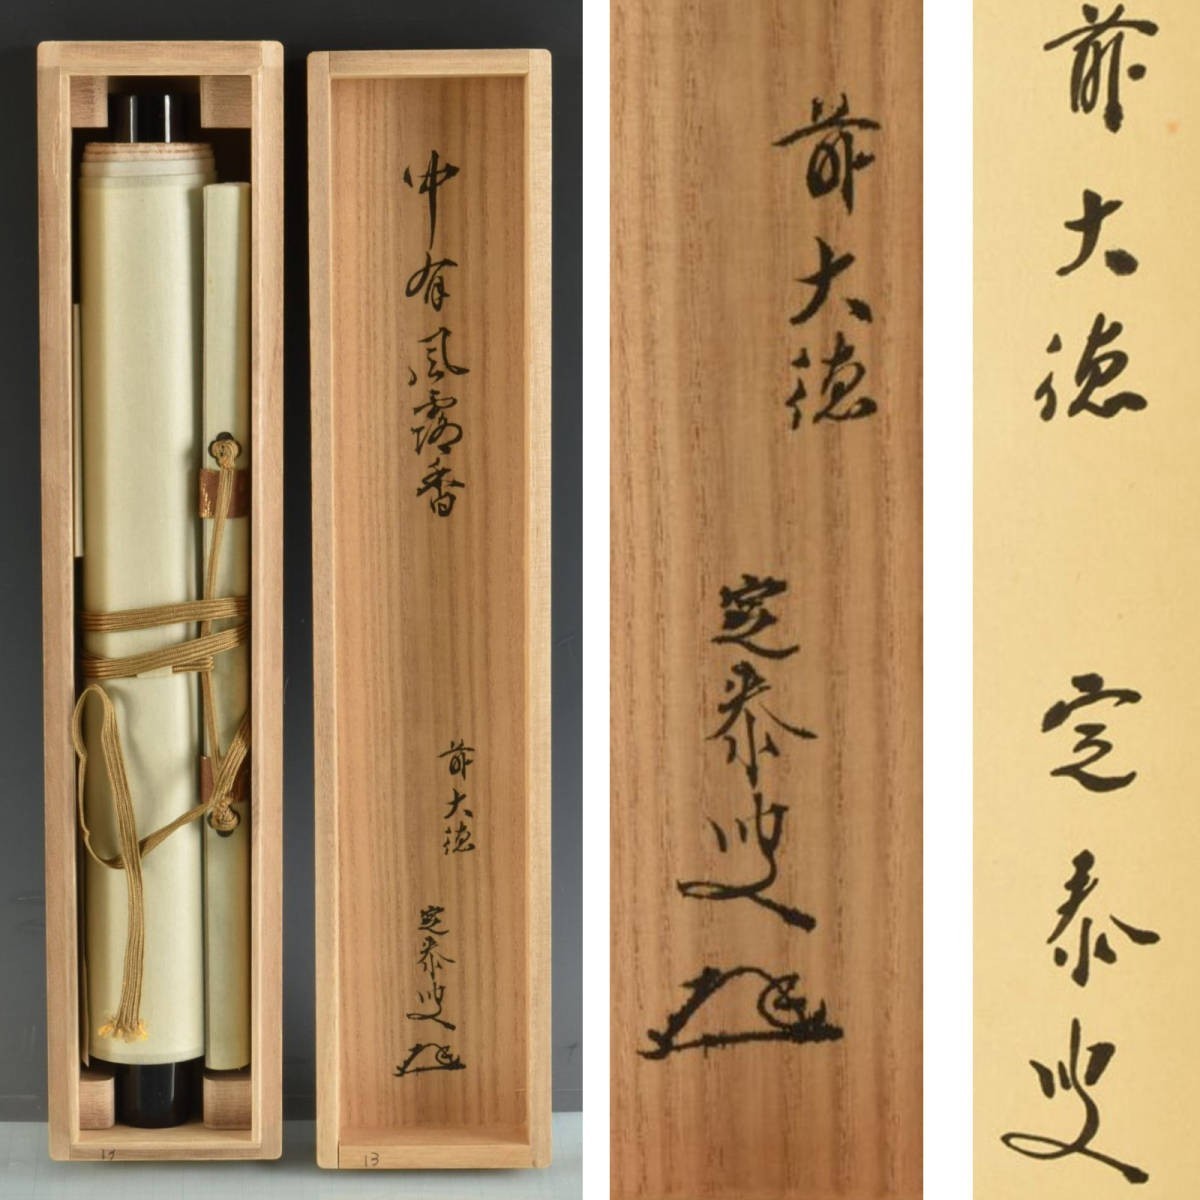 中有風露香
前大徳
定泰叟
13
13
前大徳
定泰叟
前大徳
定泰叟